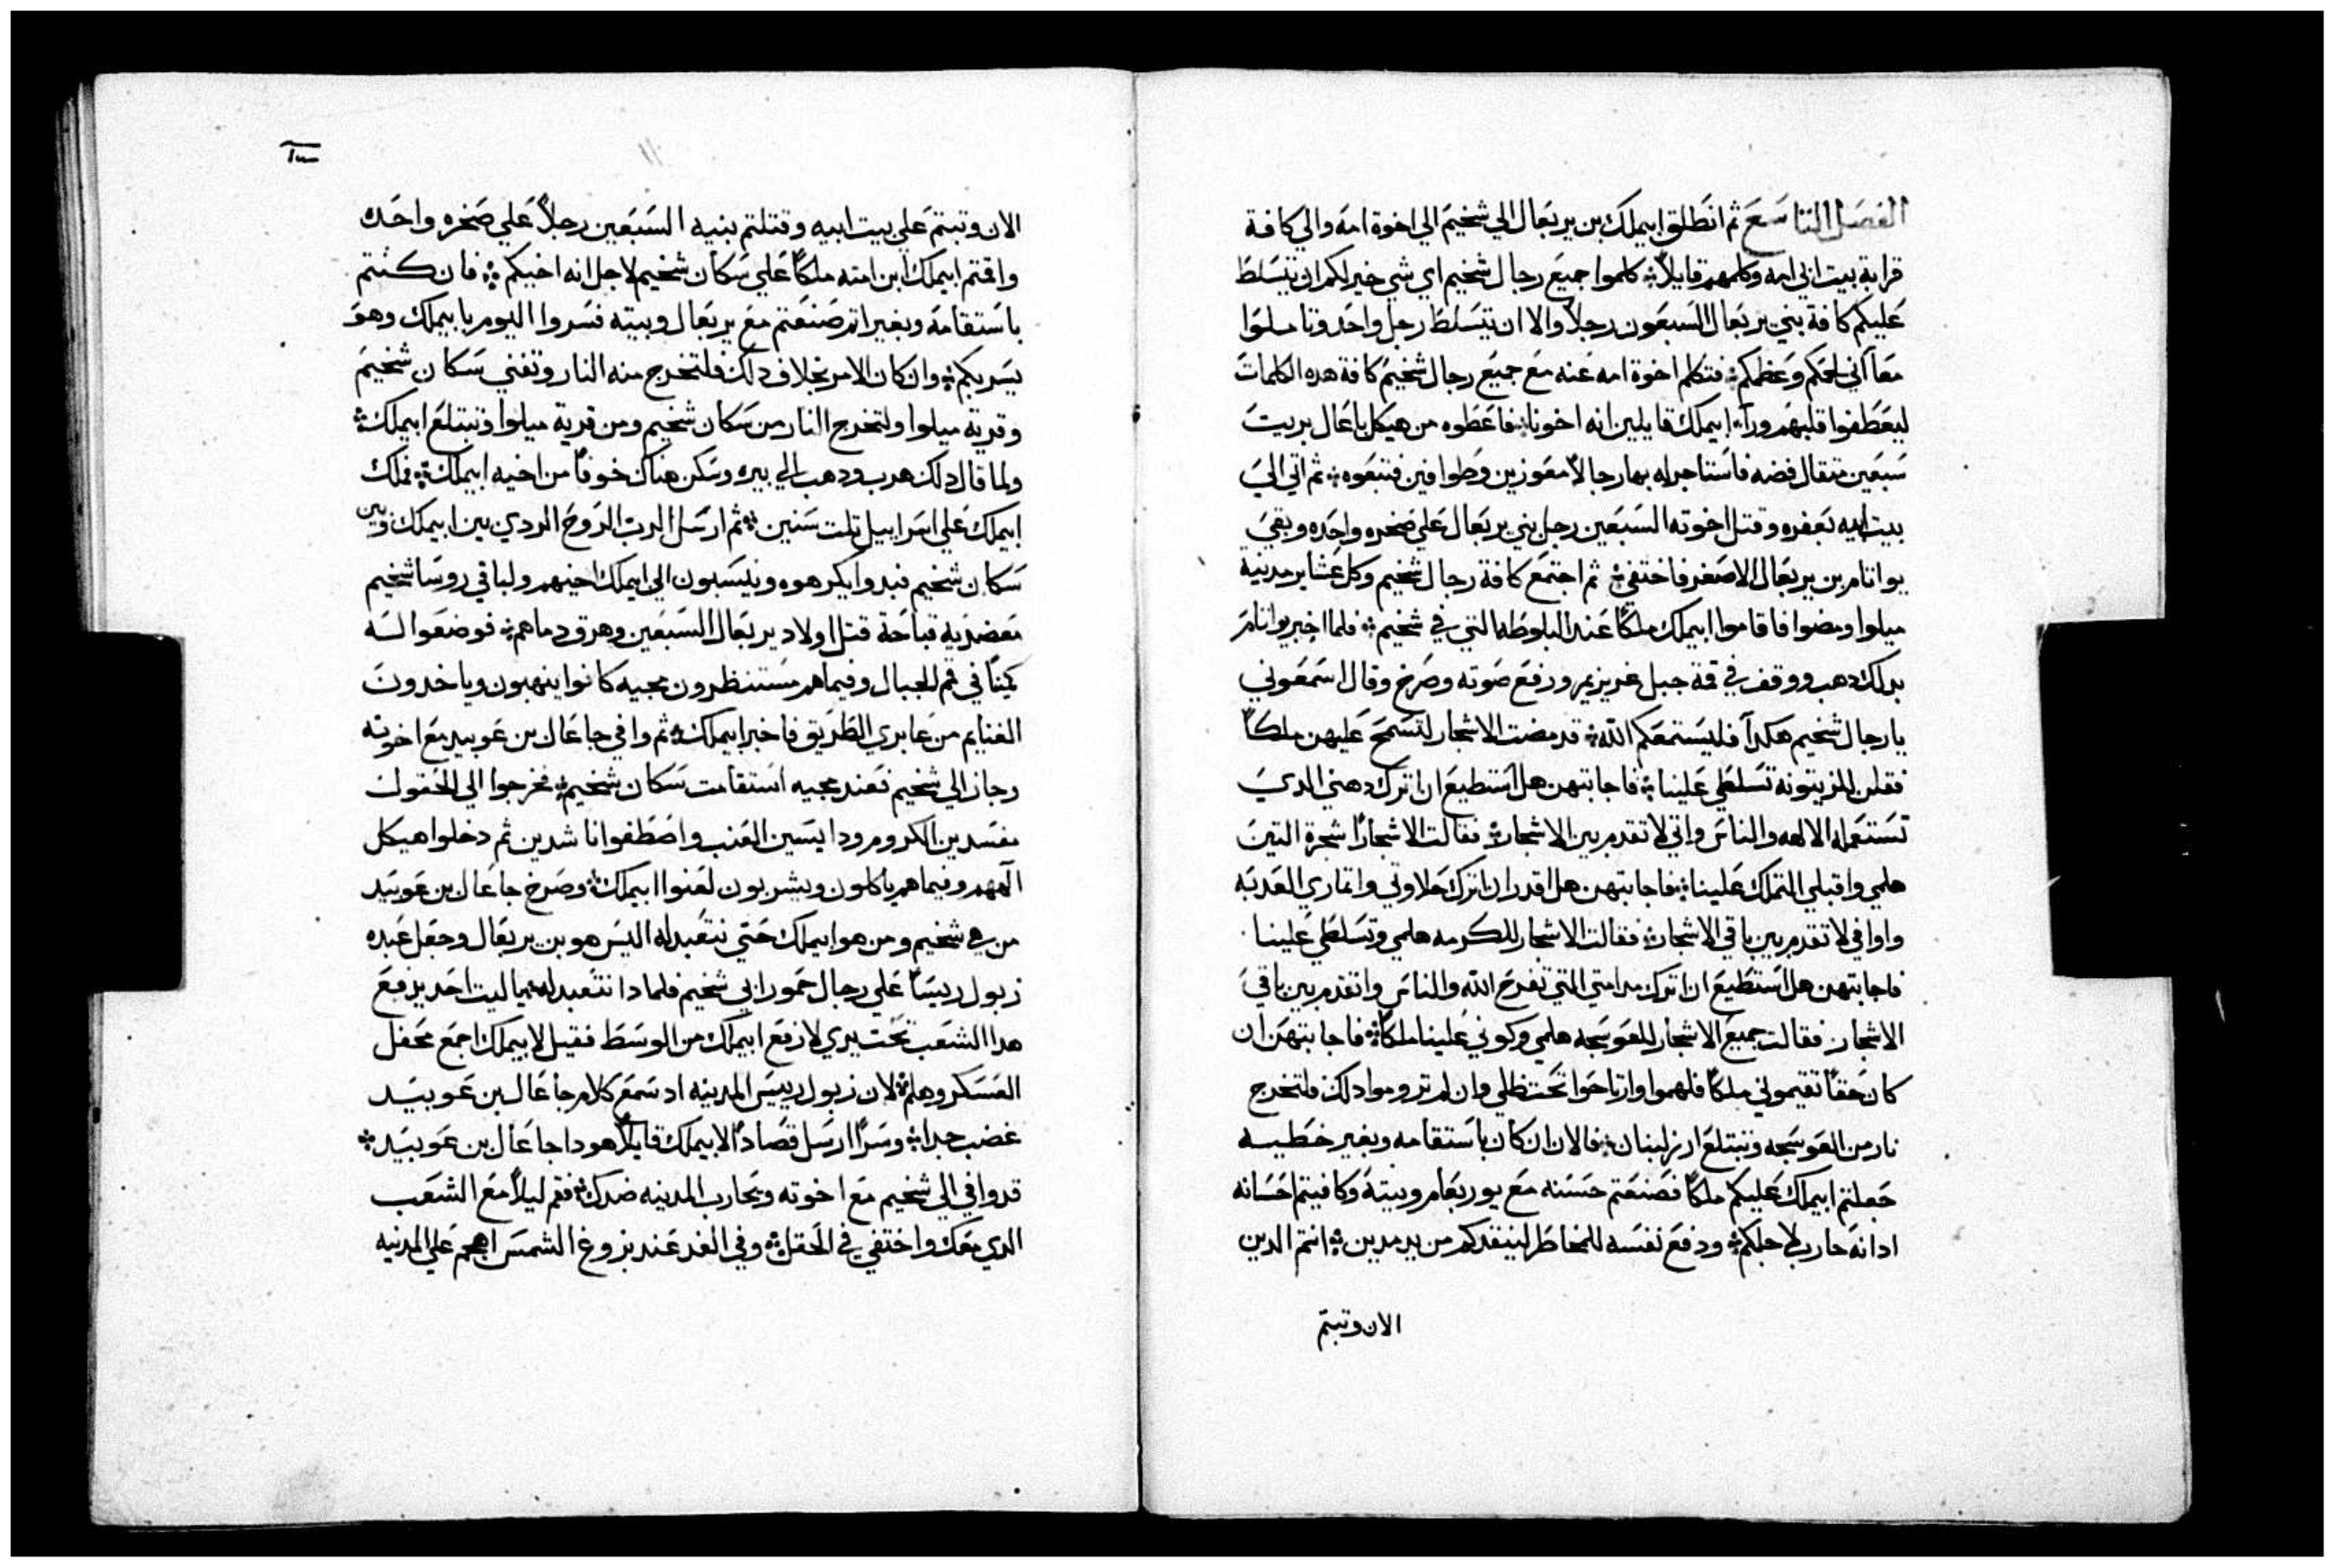 الفصل التاسع ثم انطلق ابيملك بن يربعال الي شخيم الي اخوة امه والي كافة
قرابة بيت ابي امه وكلمهم قايلاً كلموا جميع رجال شخيم اي شي خير لكم ان يتسلط
عليكم كافة بني يربعال السبعون رجلاً والا ان يتسلط رجل واحد وتاملوا
معاً اني لحمكم وعظمكم فتكلم اخوة امه عنه مع جميع رجال شخيم كافة هده الكلمات
ليعطفوا قلبهم ورآء ابيملك قايلين انه اخونا فاعطوه من هيكل باعال بريت
سبعين متقال فضه فاستاجر له بها رجالاً معوزين وطوافين فتبعوه ثم اتي الي
بيت ابيه بعفره وقتل اخوته السبعين رجل بني يربعال علي صخره واحده وبقي
يواتام بن يربعال الاصغر فاختفي ثم اجتمع كافة رجال شخيم وكل عشاير مدينة
ميلوا ومضوا فاقاموا ابيملك ملكاً عند البلوطه التي في شخيم فلما اخبر يواتام
بدلك دهب ووقف في قمة جبل غريزيم ورفع صوته وصرخ وقال اسمعوني
يا رجال شخيم هكدآ فليستمعكم الله قد مضت الاشجار لتسمح عليهن ملكاً
فقلن للزيتونة تسلطي علينا فاجابتهن هل استطيع ان اترك دهني الدي
تستعمله الالهه والناس واتي لاتقدم بين الاشجار فقالت الاشجار شجرة التين
هلمي واقبلي التملك علينا فاجابتهن هل اقدر ان اترك حلاوتي واتماري العدبه
واوافي لاتقدم بين باقي الاشجار فقالت الاشجار للكرمه هلمي وتسلطي علينا
فاجابتهن هل استطيع ان اترك مدامتي التي تفرح الله والناس واتقدم بين باقي
الاشجار فقالت جميع الاشجار للعوسجه هلمي وكوني علينا ملكاً فاجابتهن ان
كان حقاً تقيموني ملكاً فلهموا وارتاحوا تحت ظلي وان لم تروموا دلك فلتخرج
نار من العوسجه وتبتلع ارز لبنان فالان ان كان باستقامه وبغير خطيه
جعلتم ابيملك عليكم ملكاً فصنعتم حسنه مع يوربعام وبيته وكافيتم احسانه
ادانه حارب لاجلكم ودفع نفسه للمخاطر لينقدكم من يد مدين انتم الدين
الان وتبتم
الان وتبتم علي بيت ابيه وقتلتم بنيه السبعين رجلاً علي صخره واحده
واقمتم ابيملك ابن امته ملكاً علي سكان شخيم لاجل انه اخيكم فان كنتم
باستقامة وبغير اتم صنعتم مع يربعال وبيته فسروا اليوم بابيملك وهو
يسر بكم وان كان الامر بخلاف دلك فلتخرج منه النار وتفني سكان شخيم
وقرية ميلوا ولتخرج النار من سكان شخيم ومن قرية ميلوا وتبتلع ابيملك
ولما قال دلك هرب ودهب الي بيره وسكن هناك خوفاً من اخيه ابيملك فملك
ابيملك علي اسراييل تلت سنين ثم ارسل الرب الروح الردي بين ابيملك وبين
سكان شخيم فبدوا يكرهوه وينسبون الي ابيملك اخيهم ولباقي روسا شخيم
معضديه قباحة قتل اولاد يربعال السبعين وهرق دماهم فوضعوا له
كميناً في قمم الجبال وفيما هم مستنظرون مجيه كانوا ينهبون وياخدون
الغنايم من عابري الطريق فاخبر ابيملك ثم وافي جاعال بن عوبيد مع اخوته
وجاز الي شخيم فعند مجيه استقامت سكان شخيم فخرجوا الي الحقول
مفسدين الكروم ودايسين العنب واصطفوا ناشدين ثم دخلوا هيكل
الههم وفيما هم ياكلون ويشربون لعنوا ابيملك وصرخ جاعال بن عوبيد
من هي شخيم ومن هو ابيملك حتي نتعبد له اليس هو بن يربعال وجعل عبده
زبول رييساً علي رجال حمور ابي شخيم فلمادا نتعبد له يا ليت احد يرفع
هدا الشعب تحت يدي لارفع ابيملك من الوسط فقيل لابيملك اجمع محفل
العسكر وهلم لان زبول رييس المدينه اد سمع كلام جاعال بن عوبيد
غضب جدا وسراً ارسل قصاداً لابيملك قايلاً هودا جاعال بن عوبيد
قد وافي الي شخيم مع اخوته ويحارب المدينه ضدك فقم ليلاً مع الشعب
الدي معك واختفي في الحقل وفي الغد عند بزوغ الشمس اهجم علي المدينه